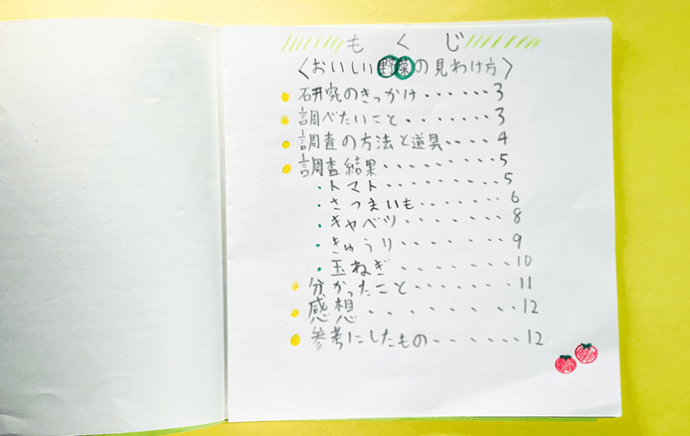 もくじ
〈おいしい野菜の見わけ方〉
研究のきっかけ......3
調べたいこと.......3
調査の方法と道具....4
調査結果..........5
・トマト..........5
・さつまいも.......6
・キャベツ........8
・きゅうり........9
・玉ねぎ.........10
分かったこと.......11
感想..........12
参考にしたもの......12